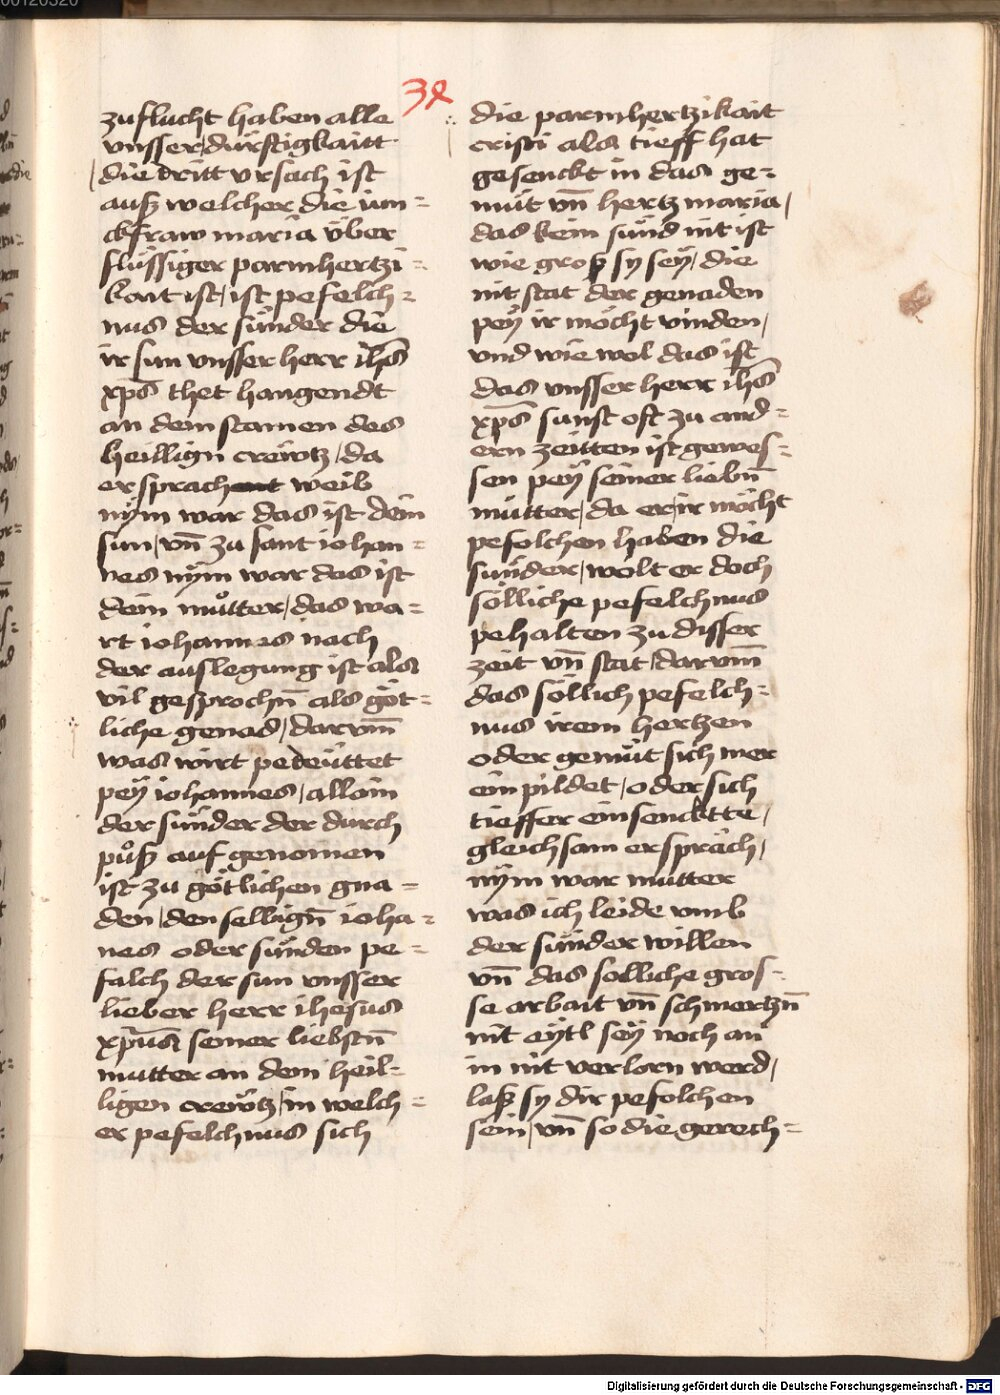 00120320
38
zuflucht haben alle
vnsser dürftigkaitt
die dritt vrsach ist
auß welcher die iun=
ckfraw maria über
flüssiger parmhertzi=
kait ist / ist pefelch=
nus der sünder die
ir sun vnsser herr ihs̄
xp̄s thet hangendt
an dem stamen des
heillign̄ crewtz / da
er sprach weib
nẏm war das ist dein
sun / vn̄ zu sant iohan=
nes nẏm war das ist
dein můtter / das wa=
rt iohannes nach
der auslegung ist als
vil gesprochn̄ als göt=
liche genad / darvm̄
was wirt pedeüttet
peẏ iohannes / allain
der sünder der durch
půß auf genomen
ist zu götlichen gna=
den / den selbign̄ ioha=
nes oder sünden pe=
falch der sun vnsser
lieber herr ihesus
xp̄us seiner liebstn̄
mutter an dem heil=
ligen crewtz / in welch=
er pefelchnus sich
die parmhertzikait
cristi als tieff hat
gesenckt in das ge=
müt vn̄ hertz maria /
das kein sünd nit ist
wie groß sy seẏ / die
nit stat der genaden
peẏ ir möcht vinden /
vnd wie wol das ist
das vnsser herr ihs̄
xp̄s sunst oft zu and=
ern zeitten ist gewes=
sen peẏ seiner liebn̄
mutter / da er ir möcht
pefolchen haben die
sünder / wolt er doch
sölliche pefelchnus
pehalten zu disser
zeit vn̄ stat / darvm̄
das söllich pefelch=
nus irem hertzen
oder gemüt sich mer
ein pildet / oder sich
tieffer ein sencktte /
gleich sam er spräch /
nẏm war mutter
was ich leide vmb
der sünder willen
vn̄ das solliche gros=
se arbait vn̄ schmertzn̄
nit eẏtl seẏ noch an
in nit verlorn werd /
laß sy dir pefolchen
sein / vn̄ so die gerech=
Digitalisierung gefördert durch die Deutsche Forschungsgemeinschaft - DFG